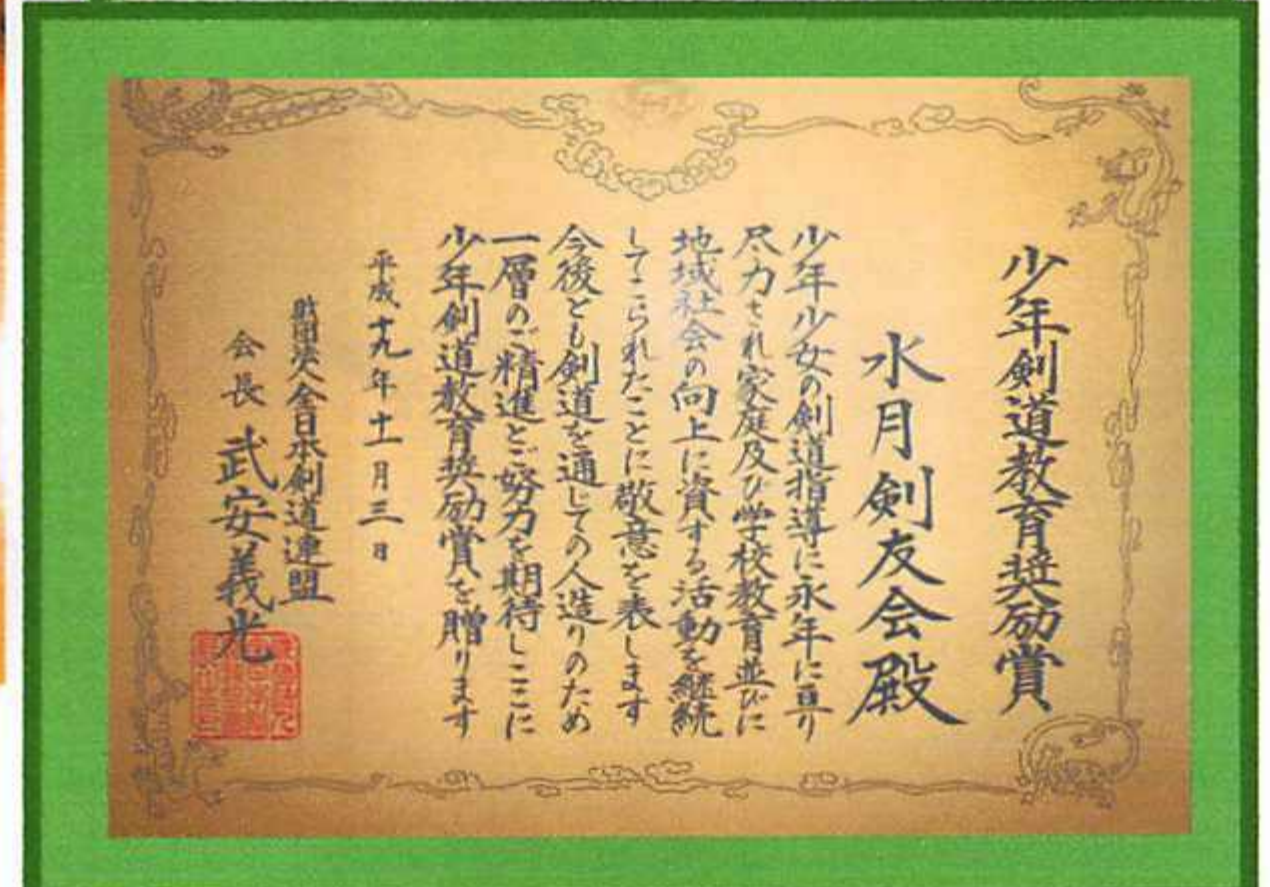 少年剣道教育奨励賞
水月剣友会殿
少年少女の剣道指導に永年に亘り
尽力され家庭及び学校教育並びに
地域社会の向上に資する活動を継続
してこられたことに敬意を表します
今後とも剣道を通しての人造りのため
一層のご精進とご努力を期待しここに
少年剣道教育奨励賞を贈ります
平成十九年十一月三日
財団法人全日本剣道連盟
会長 武安義光